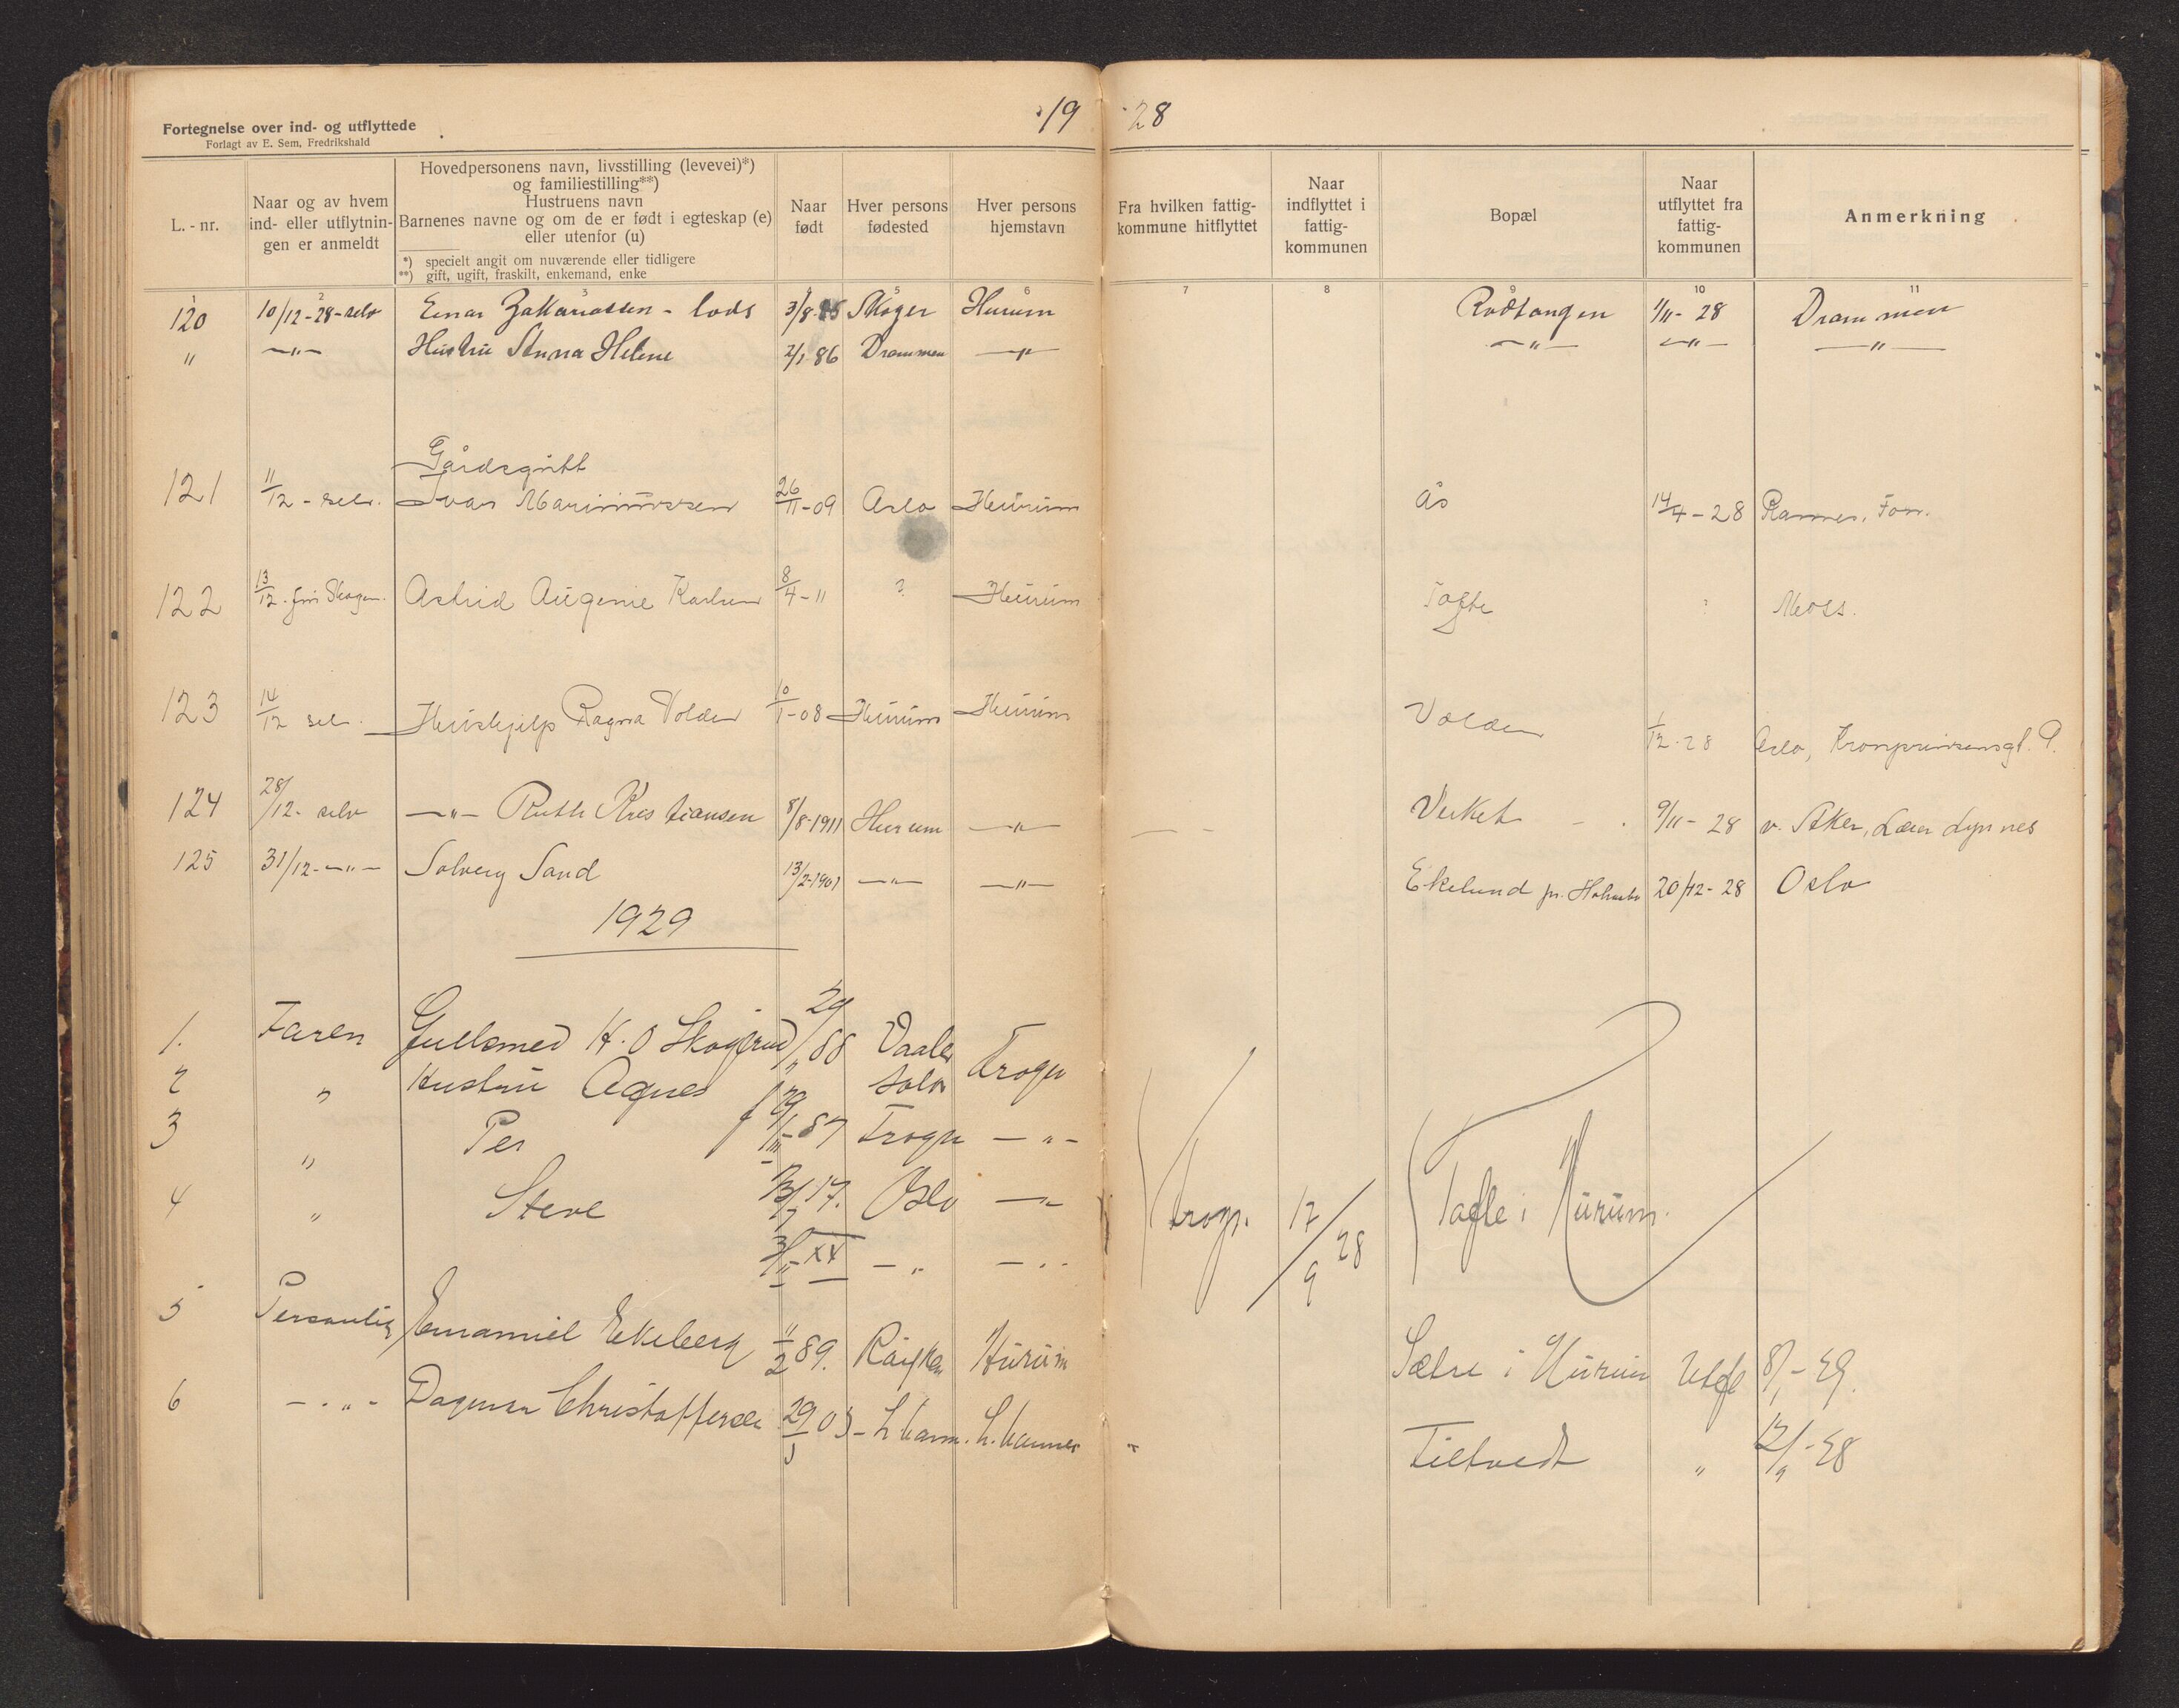 19 28
Fortegnelse over ind- og utflyttede
Forlagt av E. Sem, Fredrikshald
L. - nr.
Naar og av hvem
ind- eller utflytnin-
gen er anmeldt
Hovedpersonens navn, livsstilling (levevei)*)
og familiestilling**)
Hustruens navn
Barnenes navne og om de er født i egteskap (e)
eller utenfor (u)
*) specielt angit om nuværende eller tidligere
**) gift, ugift, fraskilt, enkemand, enke
Naar
født
Hver persons
fødested
Hver persons
hjemstavn
Fra hvilken fattig-
kommune hitflyttet
Naar
indflyttet i
fattig-
kommunen
Bopæl
Naar
utflyttet fra
fattig-
kommunen
Anmerkning
1 2 3 5 6 7 8 9 10 11
120 10/12-28-selv Einar Zakariassen - lods 3/8- Skoger Hurum Rødtangen 1/11- 28 Drammen
" —"— Hustru Helene 2/1 86 Drammen —"— —"— —"— —"—
Gårdsgutt
121 11/12 - selv. Ivar Marinussen 26/11-09 Oslo Hurum Ås 14/4-28
122 13/12 Astrid Augenie Karlsen 8/4-11 ? Hurum Tofte ? Moss.
123 14/12 selv. Hushjelp Ragna Volden 10/1-08 Hurum Hurum Volden 1/12-28 Oslo, Kronprinsensgt. 9.
124 28/12- selv —"— Ruth Kristiansen 8/8-1911 Hurum —"— Verket 9/11- 28 v. Aker,
125 31/12-—"— Solveig Sand 13/2-1901 —"— —"— Ekelund pr. Holmsbu 20/12- 28 Oslo
1929
1. Faren Gullsmed H. O Skogsrud 29/ 88 Vaaler Soløer Frogn
2 " Hustru Agnes f 29/ 87 Frogn —"—
3 " Per 17. Oslo —"—
4 " Steve —" —"
Frogn. 17/9 28 Tofte i Hurum.
5 Personlig Emanuel Ekeberg 11/2 89. Røyken Hurum Sætre i Hurum Utfl 8/1 - 29.
6 —"— Dagmar Christoffersen 29 03 Tiltvedt "